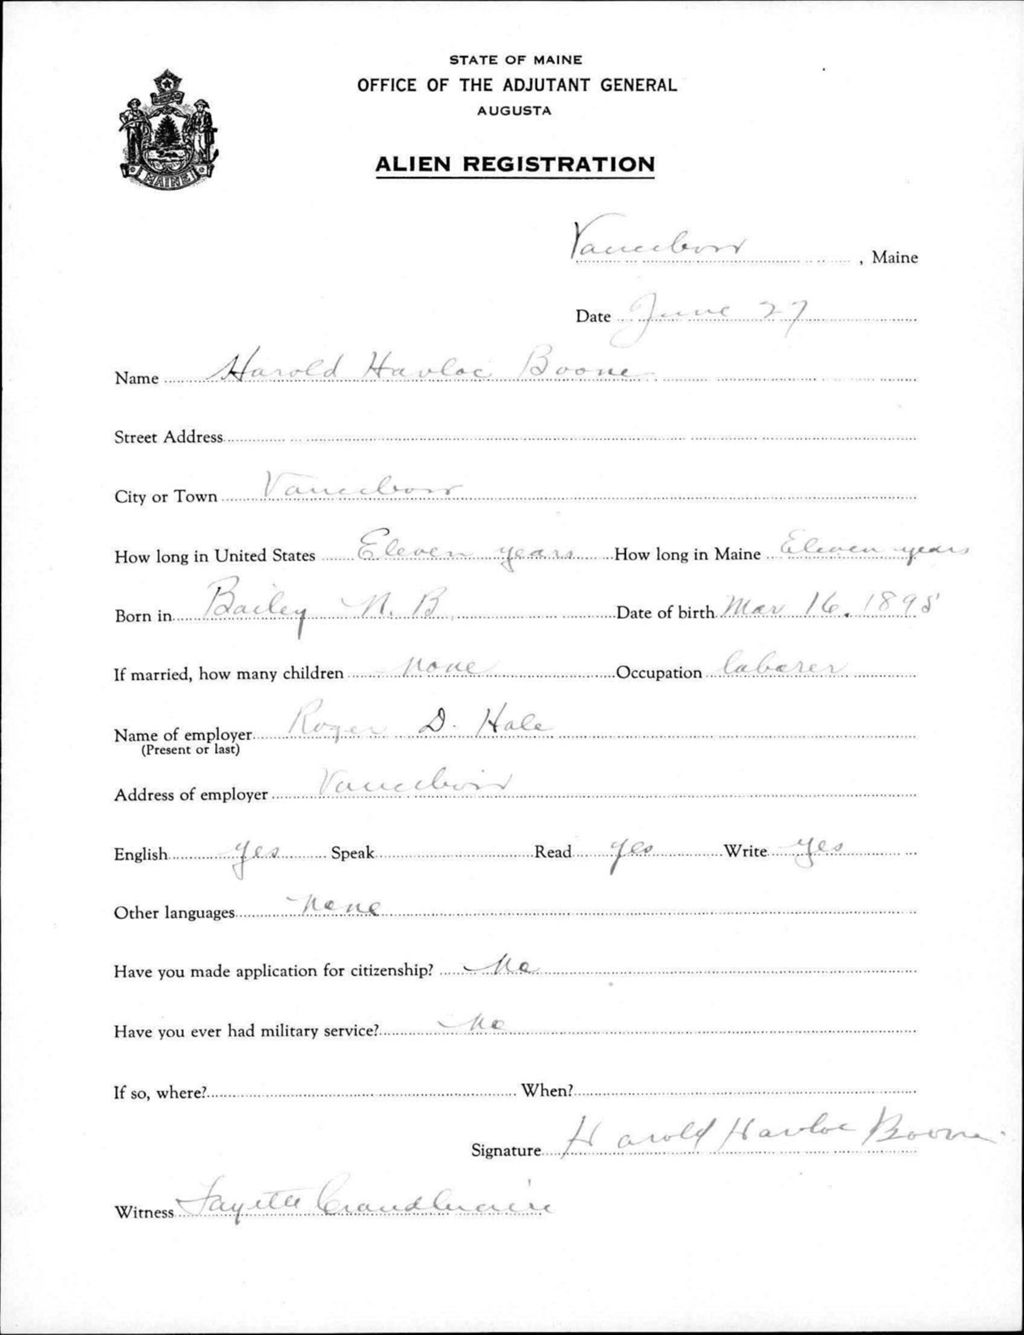 STATE OF MAINE
OFFICE OF THE ADJUTANT GENERAL
AUGUSTA
ALIEN REGISTRATION
MAINE
Vanceboro, Maine
Date June 27
Name Harold Havloc Boone
Street Address
City or Town Vanceboro
How long in United States Eleven years How long in Maine Eleven years
Born in Bailey N. B. Date of birth Mar 16. 1898
If married, how many children None Occupation laborer
Name of employer Roger D. Hale
(Present or last)
Address of employer Vanceboro
English yes Speak Read yes Write yes
Other languages None
Have you made application for citizenship? No
Have you ever had military service? No
If so, where? When?
Signature Harold Havloc Boone
Witness Fayette